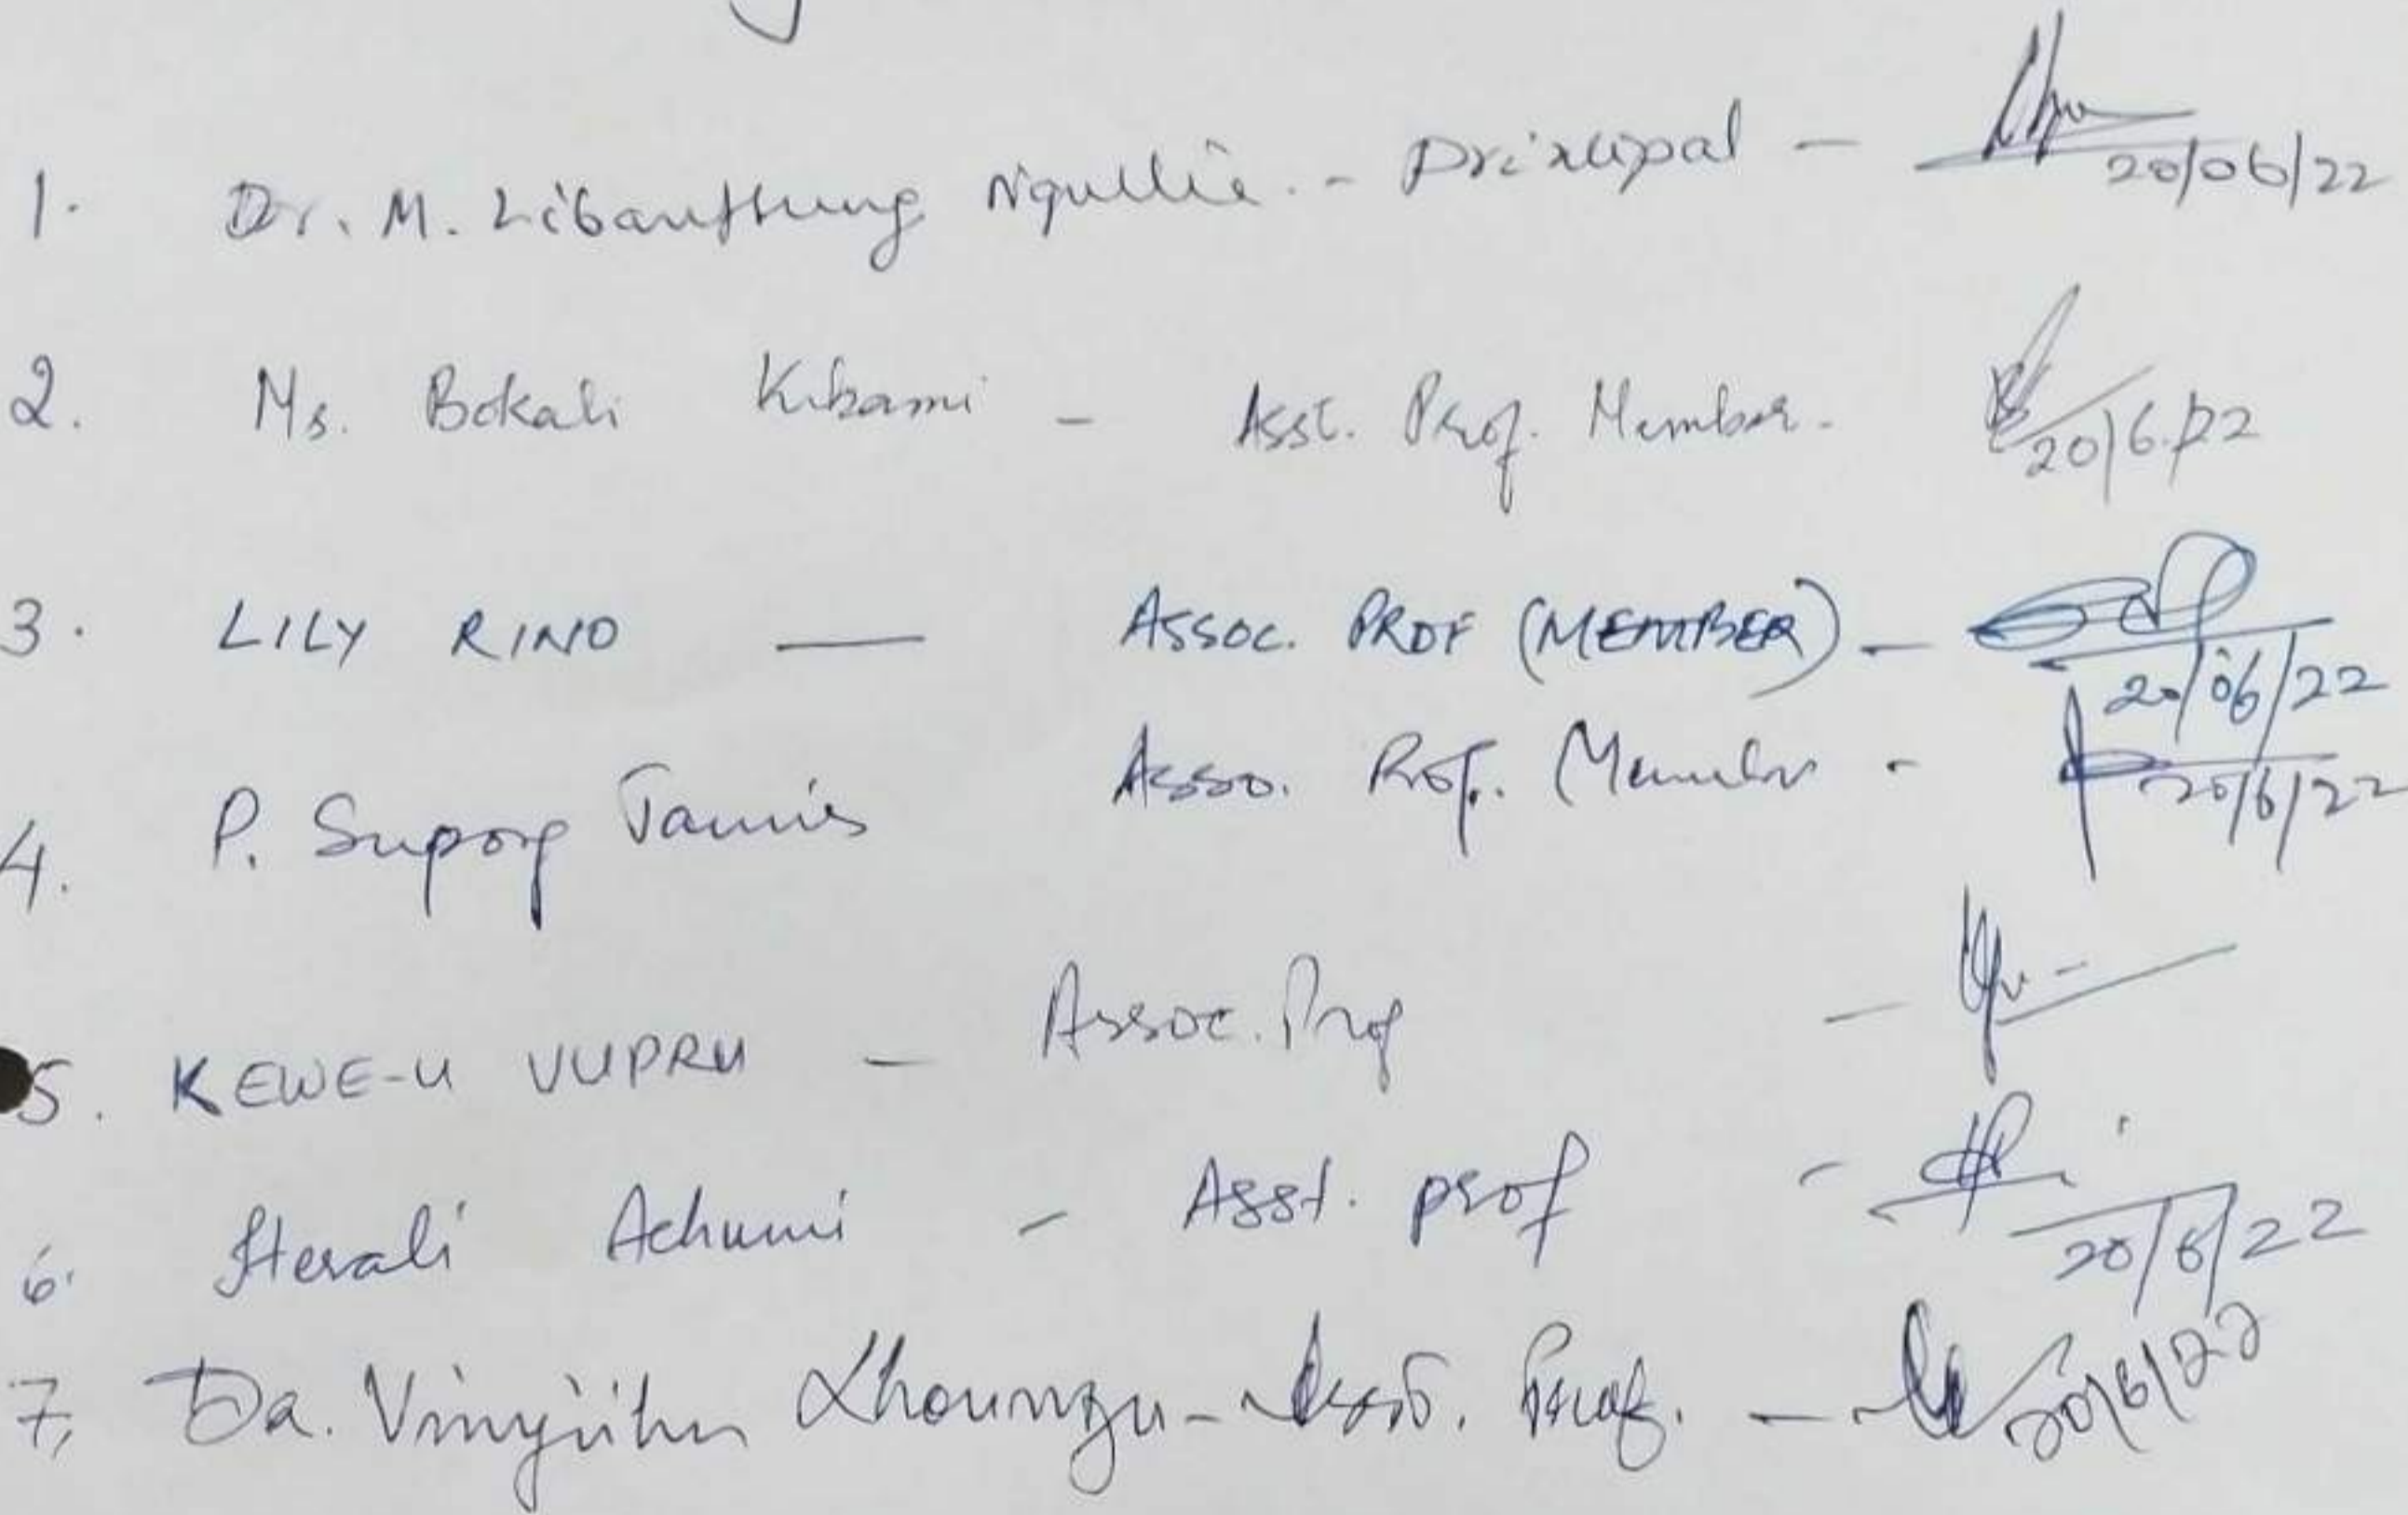 1. Dr. M. Libanthung Ngullie. - Principal - 20/06/22
2. Ms. Bokali Kibami - Asst. Prof. Member. 20/6/22
3. LILY RINO — ASSOC. PROF (MEMBER) - 20/06/22
4. P. Supong Asso. Prof. Member - 20/6/22
5. KEWE-U VUPRU - Assoc. Prof -
6. Herali Achumi - Asst. prof - 20/6/22
7. Dr. - Asst. Prof. - 20/6/22